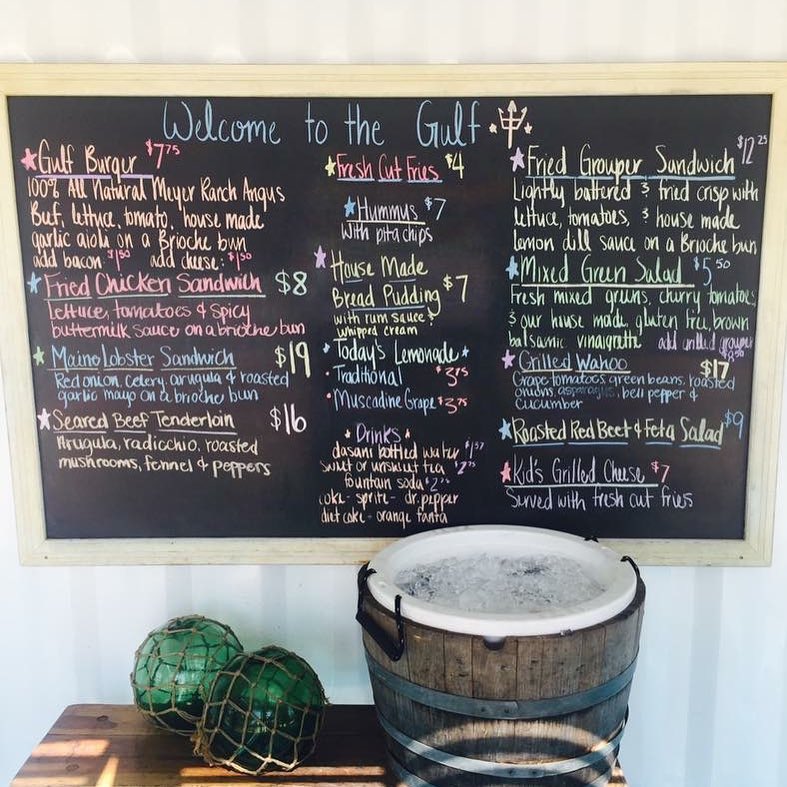 Welcome to the Gulf
Gulf Burger $7.75
100% All Natural Meyer Ranch Angus
Beef, lettuce, tomato, house made
garlic aioli on a Brioche bun
add bacon $1.50 add cheese: $1.50
Fried Chicken Sandwich $8
Lettuce, tomatoes & spicy
buttermilk sauce on a brioche bun
Maine Lobster Sandwich $19
Red onion, celery, arugula & roasted
garlic mayo on a brioche bun
Seared Beef Tenderloin $16
Arugula, radicchio, roasted
mushrooms, fennel & peppers
Fresh Cut Fries $4
Hummus $7
with pita chips
House Made
Bread Pudding $7
with rum sauce &
whipped cream
Today's Lemonade
Traditional $3.75
Muscadine Grape $3.75
Drinks
dasani bottled water
sweet or unsweet tea $2.75
fountain soda $2.75
coke - sprite - dr. pepper
diet coke - orange fanta
Fried Grouper Sandwich $12.25
Lightly battered & fried crisp with
lettuce, tomatoes, & house made
lemon dill sauce on a Brioche bun
Mixed Green Salad $5.50
Fresh mixed greens, cherry tomatoes,
& our house made, gluten free, brown
balsamic vinaigrette add grilled grouper
$8.50
Grilled Wahoo $17
Grape tomatoes, green beans, roasted
onions, asparagus, bell pepper &
cucumber
Roasted Red Beet & Feta Salad $9
Kid's Grilled Cheese $7
Served with fresh cut fries